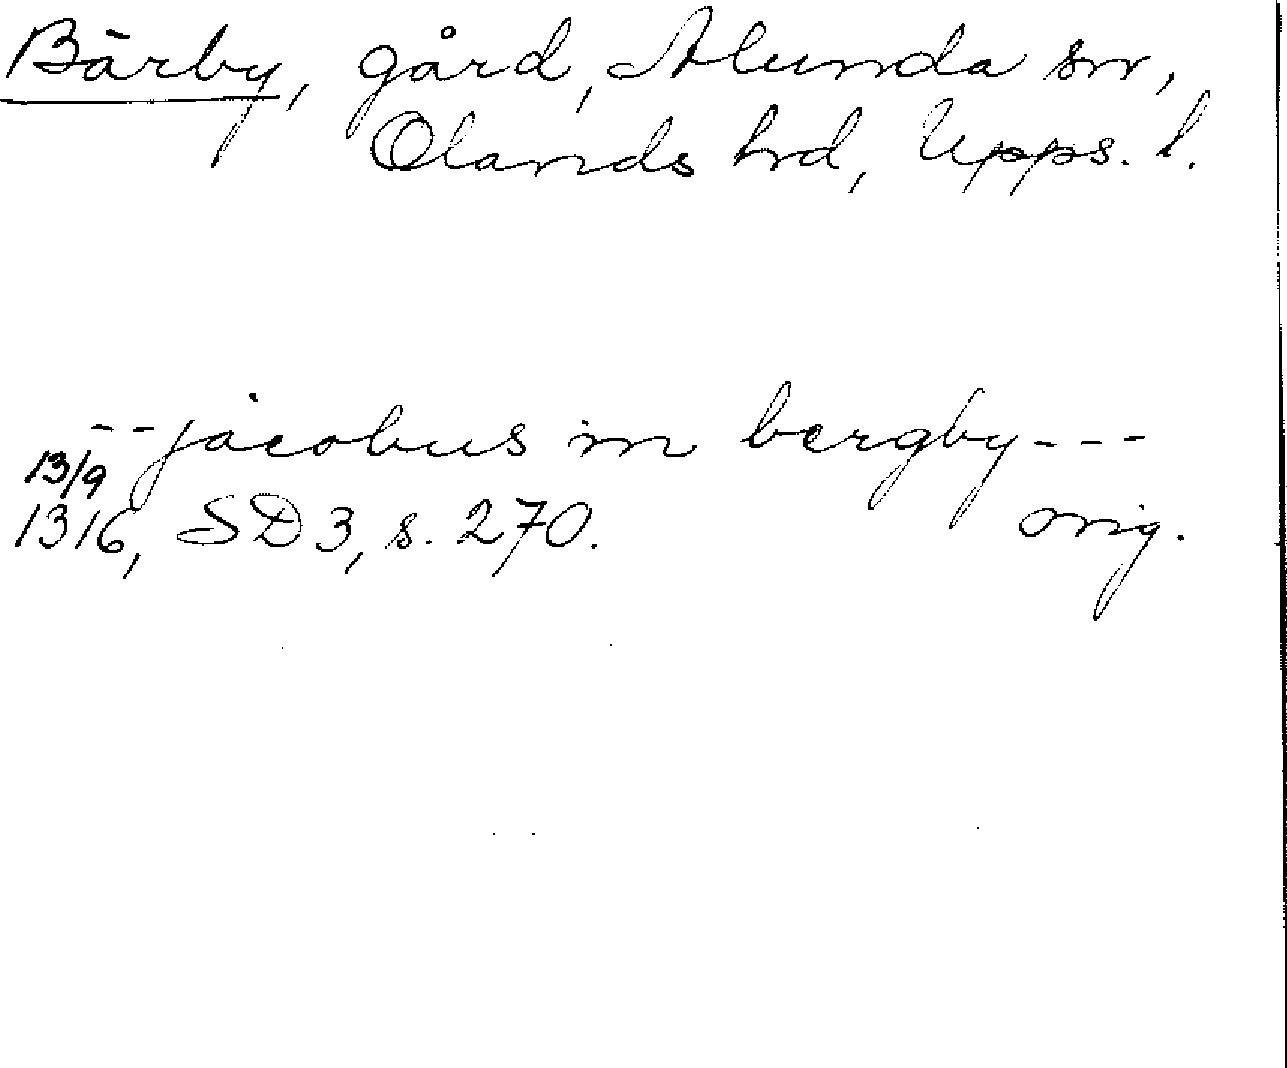 Bärby, gård, Alunda sn,
Olands hd, Upps. l.
-- jacobus in bergby ---
13/9
1316, SD 3, s. 270. orig.